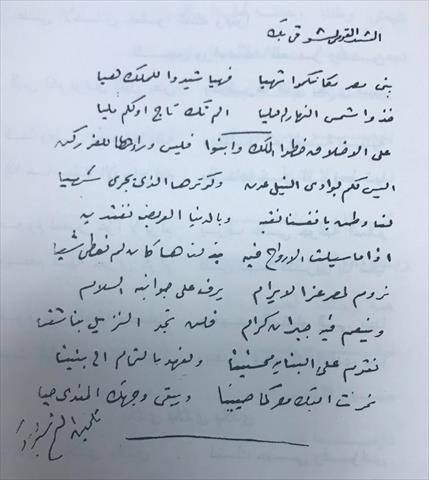 النشيد القومى لشوقى بك
بنى مصر مكانكموا تهيا فهيا شيدوا للملك هيا
خذوا شمس النهار له حليا الم تك تاج اولكم مليا
على الاخلاق خطوا الملك وابنوا فليس وراءها للعز ركن
اليس لكم بوادى النيل عدن وكوثرها الذى يجرى شهيا
لنا وطن بانفسنا نقيه وبالدنيا العريضة نفتديه
اذا ما سيلت الارواح فيه بذلناها كان لم نعطى شيا
نروم لمصر عزا لا يرام يرف على جوانبه السلام
وينعم فيه جيران كرام فلن تجد النزيل بنا شقيا
نقوم على البنايه محسنينا ونعهد بالتمام الى بنينا
نموت اليك مصر كما حيينا ويبقى وجهك المفدى حيا
تلحين الشيخ